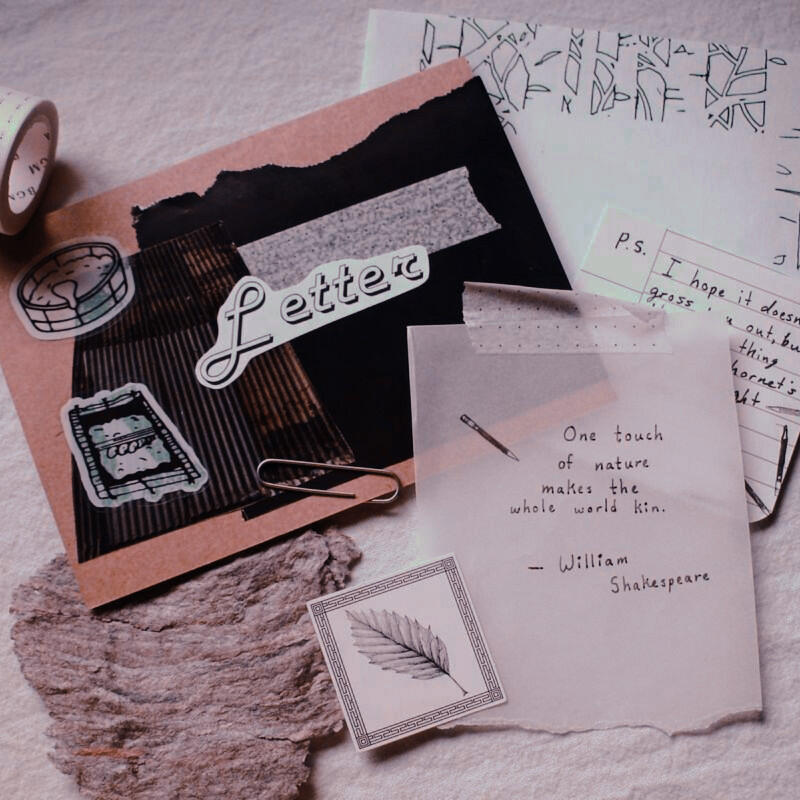 Letter
P.S.
I hope it doesn
gross you out, bu
thing
hornet's
One touch
of nature
makes the
whole world kin.
— William
Shakespeare